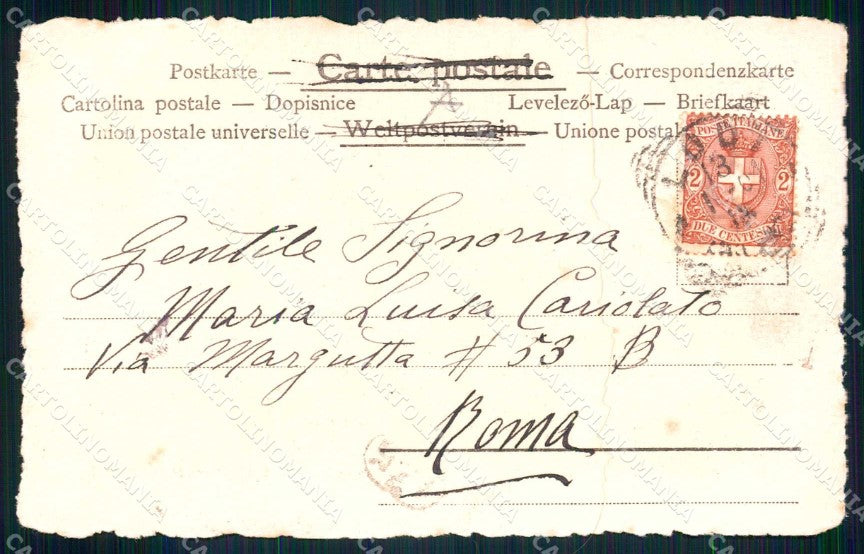 Postkarte — Carte postale — Correspondenzkarte
Cartolina postale — Dopisnice Levelező-Lap — Briefkaart
Union postale universelle — Weltpostverein — Unione postal
POSTE ITALIANE
2 2
DUE CENTESIMI
Gentile Signorina
Maria Luisa Cariolato
Via Margutta # 53 B
Roma
CARTOLINOMANIA